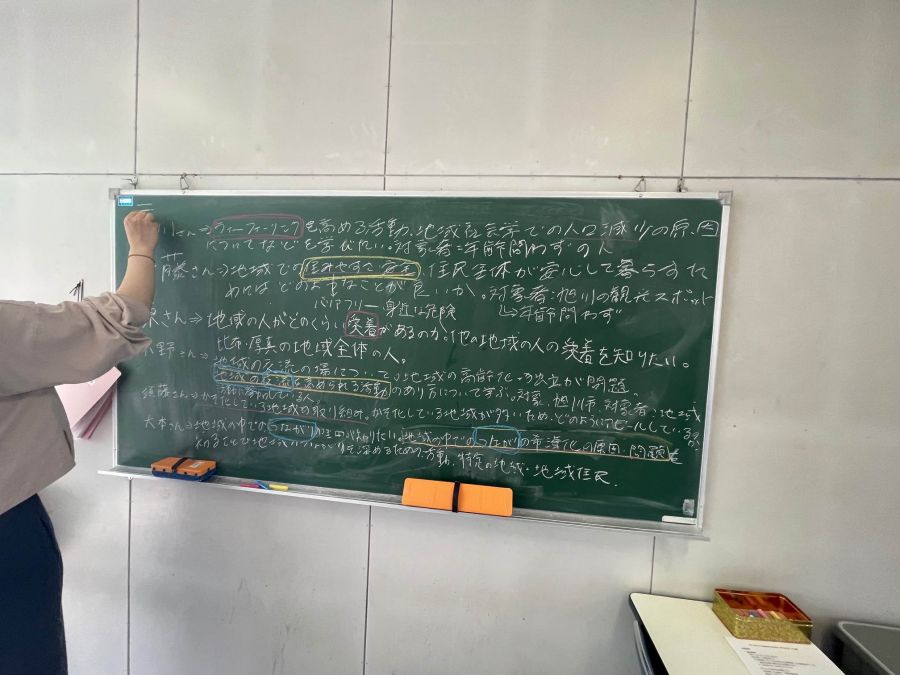 川さん⇒ウィーフィーリングを高める活動、地域社会学での人口減少の原因
についてなどを学びたい。対象者=年齢問わずの人
藤さん⇒地域での住みやすさ・安全 住民主体が安心して暮らすた
めには どのようなことが良いか。対象者:旭川の観光スポット
バリアフリー 身近な危険 ↳年齢問わず
さん⇒地域の人がどのくらい愛着があるのか。他の地域の人の愛着を知りたい。
比布・厚真の地域全体の人。
野さん⇒地域の交流の場について。地域の高齢化・孤立が問題
地域の交流を高められる活動のあり方について学ぶ。対象、旭川市、対象者:地域
活動に参加している人
須藤さん⇒かそ化している地域の取り組み、かそ化している地域が多いため、どのようにアピールしているか
大本さん⇒地域の中でのつながりの を知りたい。地域の中でのつながりの希薄化の原因・問題を
知ることで地域の を深めるための活動、特定の地域・地域住民.